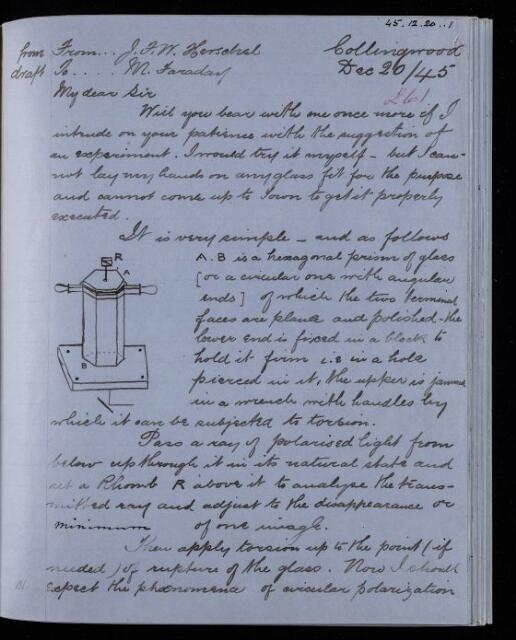 45.12.20..1
from From... J.F.W. Herschel Collingwood
draft To.... M. Faraday Dec 20/45
My dear Sir
Will you bear with me once more if I
intrude on your patience with the suggestion of
an experiment. I would try it myself - but I can-
not lay my hands on any glass fit for the purpose
and cannot come up to Town to get it properly
executed.
It is very simple - and as follows
R
A
B
A.B is a hexagonal prism of glass
[or a circular one with angular
ends] of which the two terminal
faces are plane and polished - the
lower end is fixed in a block to
hold it firm i.e in a hole
pierced in it, the upper is jammed
in a wrench with handles by
which it can be subjected to torsion.
Pass a ray of polarised light from
below up through it in its natural state and
set a Rhomb R above it to analyze the trans-
mitted ray and adjust to the disappearance or
minimum of one image.
Then apply torsion up to the point (if
needed) of rupture of the glass. Now I should
expect the phænomena of circular polarization